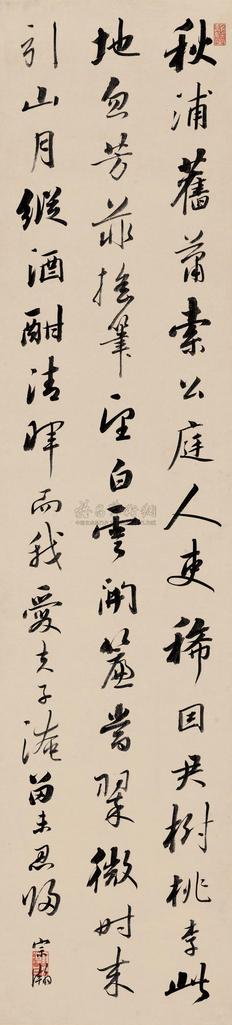 秋浦舊蕭索公庭人吏稀因君樹桃李此
地忽芳菲搖筆望白雲開簾當翠微時來
引山月縱酒酣清暉而我愛夫子淹留未思歸
宗瀚